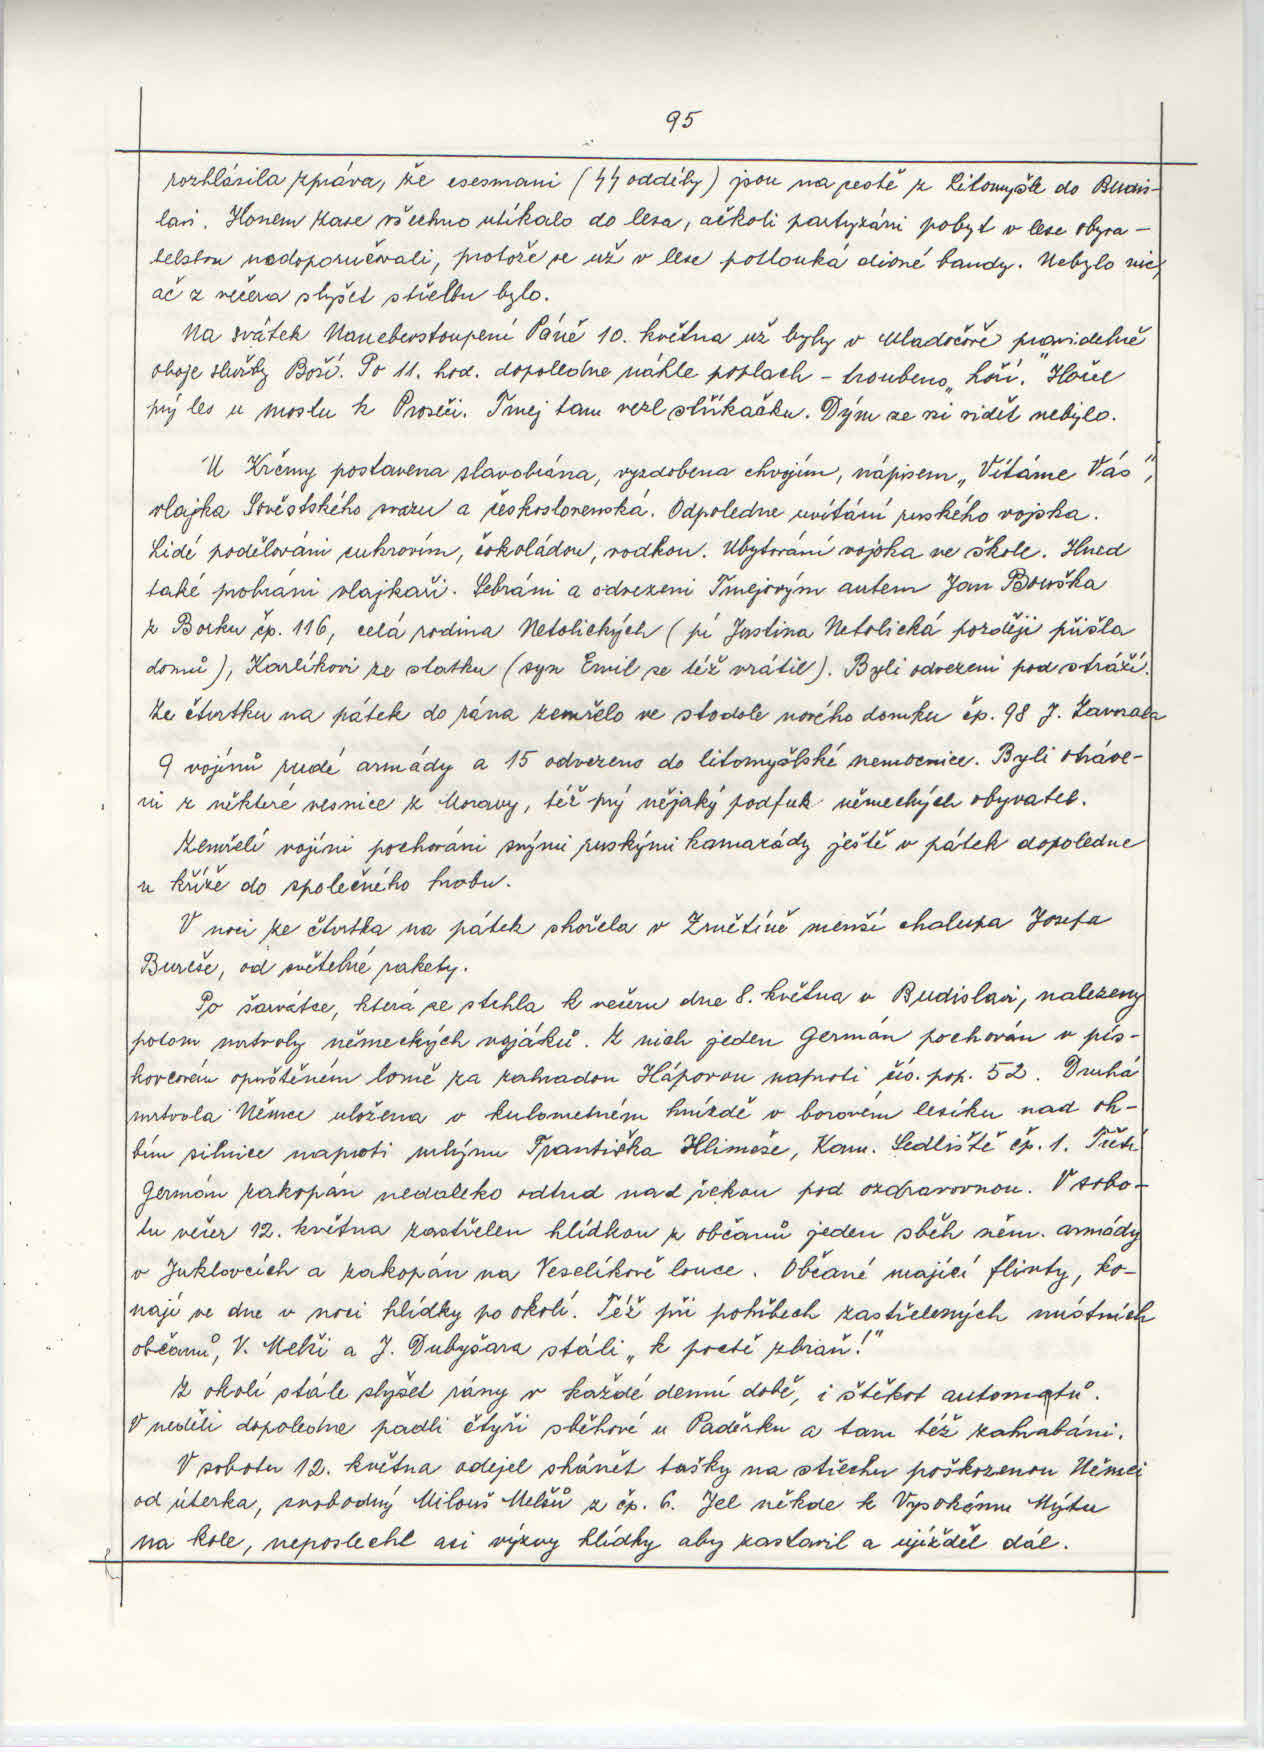 95
rozhlásila zpráva, že esesmani (SS oddíly) jsou na cestě z Litomyšle do Budis-
lavi. Honem zase všechno utíkalo do lesa, ačkoli partyzáni pobyt v lese obyva-
telstvu nedoporučovali, protože se už v lese potlouká divné bandy. Nebylo nic,
ač z večera slyšet střelbu bylo.
Na svátek Nanebevstoupení Páně 10. května už byly v Mladočově pravidelně
oboje služby Boží. Po 11. hod. dopoledne náhle poplach - troubeno „hoří". Hořel
prý les u mostu k Proseči. Tmej tam vezl stříkačku. Dým ze vsi vidět nebylo.
U Krčmy postavena slavobrána, vyzdobena chvojím, nápisem „Vítáme Vás",
vlajka Sovětského svazu a československá. Odpoledne uvítání ruského vojska.
Lidé podělováni cukrovím, čokoládou, vodkou. Ubytování vojska ve škole. Hned
také probráni vlajkaři. Sebráni a odvezeni Tmejovým autem Jan Bouška
z Borku čp. 116, celá rodina Netolických (pí Justina Netolická později přišla
domů), Karlíkovi ze statku (syn Emil se též vrátil). Byli odvezeni pod stráží.
Ze čtvrtku na pátek do rána zemřelo ve stodole nového domku čp. 98 J. Zavorala
9 vojínů rudé armády a 15 odvezeno do litomyšlské nemocnice. Byli otráve-
ni z některé vesnice z Moravy, též prý nějaký podfuk německých obyvatel.
Zemřelí vojíni pochováni svými ruskými kamarády ještě v pátek dopoledne
u kříže do společného hrobu.
V noci ze čtvrtka na pátek shořela v Zrnětíně menší chalupa Josefa
Bureše, od světelné rakety.
Po šarvátce, která se strhla k večeru dne 8. května v Budislavi, nalezeny
potom mrtvoly německých vojáků. Z nich jeden Germán pochován v pís-
kovcovém opuštěném lomě za zahradou Háporou naproti čís. pop. 52. Druhá
mrtvola Němce uložena v kulometném hnízdě v borovém lesíku nad oh-
bím silnice naproti mlýnu Františka Klimeše, Kam. Sedliště čp. 1. Třetí
Germán zakopán nedaleko odtud nad řekou pod ozdravovnou. V sobo-
tu večer 12. května zastřelen hlídkou z občanů jeden sběh něm. armády
v Juklovcích a zakopán na Veselíkově louce. Občané mající flinty, ko-
nají ve dne v noci hlídky po okolí. Též při pohřbech zastřelených místních
občanů, V. Melši a J. Dubyšara stáli „k poctě zbraň!"
Z okolí stále slyšet rány v každé denní době, i štěkot automatů.
V neděli dopoledne padli čtyři sběhové u Paděrku a tam též zahrabáni.
V sobotu 12. května odejel shánět tašky na střechu poškozenou Němci
od úterka, svobodný Milouš Melšů z čp. 6. Jel někde k Vysokému Mýtu
na kole, neposlechl asi výzvy hlídky aby zastavil a ujížděl dál.